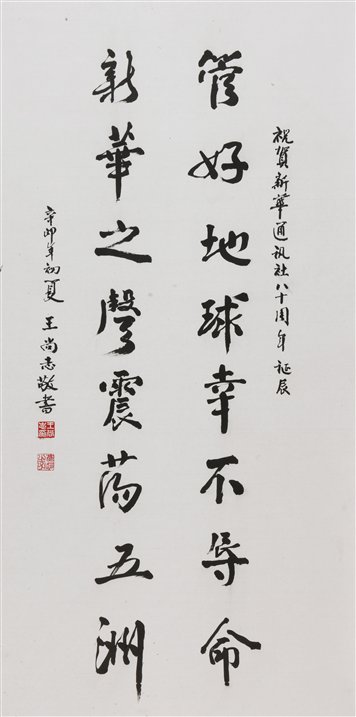 祝賀新華通訊社八十周年誕辰
管好地球幸不辱命
新華之聲震蕩五洲
辛卯年初夏 王尚志敬書